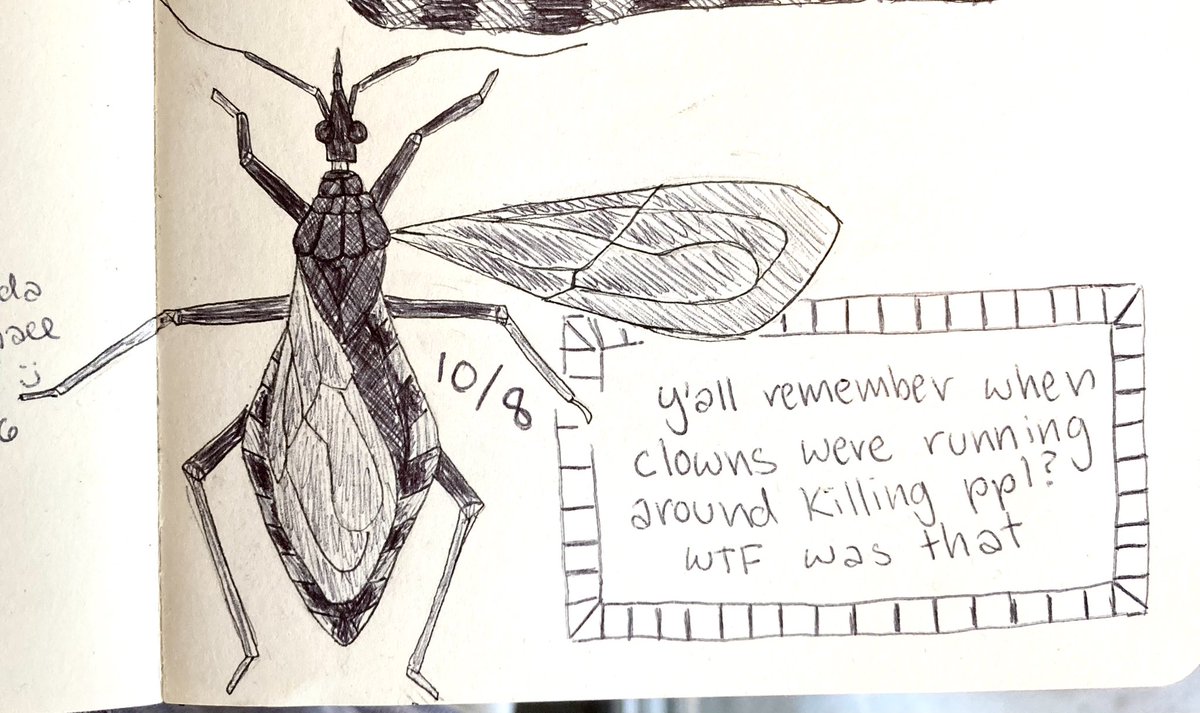 10/8
y'all remember when
clowns were running
around killing ppl?
WTF was that